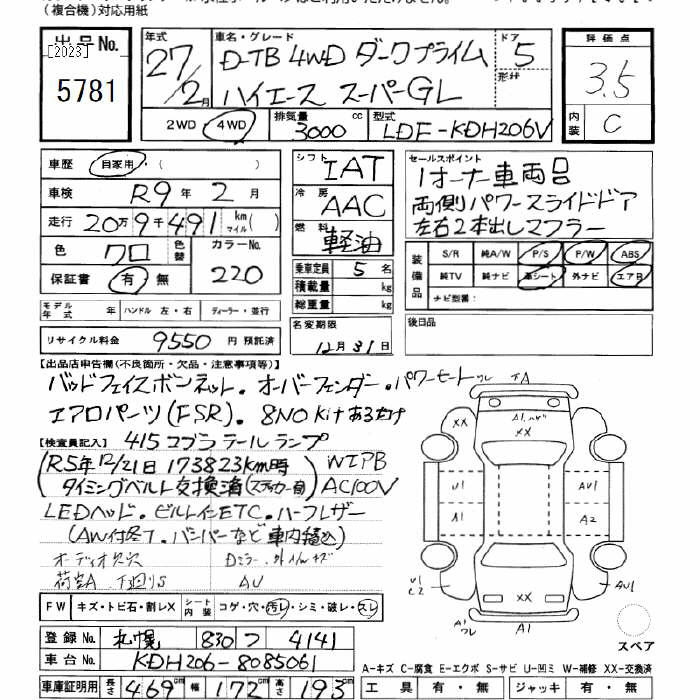 （複合機）対応用紙
出品No. [2023] 5781
年式 27/2月
車名・グレード D-TB 4WD ダークプライム
ハイエース スーパーGL
ドア 5
形状
2WD 4WD
排気量 3000 cc
型式 LDF-KDH206V
評価点 3.5
内装 C
車歴 自家用・( )
車検 R9年 2月
走行 20万9千491 km マイル( )
色 クロ 色替 カラーNo. 220
保証書 有 無
モデル年式 年 ハンドル 左・右 ディーラー・並行
リサイクル料金 9550 円 預託済
シフト IAT
冷房 AAC
燃料 軽油
乗車定員 5 名
積載量 kg
総重量 kg
名変期限
12月31日
セールスポイント
1オーナー車両品
両側パワースライドドア
左右2本出しマフラー
装備品 S/R 純A/W P/S P/W ABS
純TV 純ナビ 革シート 外ナビ エアB
ナビ型番：
後日品
【出品店申告欄(不良箇所・欠品・注意事項等)】
バッドフェイスボンネット。オーバーフェンダー。パワーモートワレ
エアロパーツ(FSR)。8NO Kitあるだけ
【検査員記入】 415コブラテールランプ
(R5年12/21日 173823km時
タイミングベルト交換済(ステッカー有)
WIPB
AC100V
LEDヘッド。ビルトインETC。ハーフレザー
(AW付終了。バンパーなど車内積込)
オーディオ欠穴 Dミラー・外インキズ
荷室A 下廻りS AU
FW キズ・トビ石・割レX シート内装 コゲ・穴・汚レ・シミ・破レ・スレ
登録No. 札幌 830 つ 4141
車台No. KDH206-8085061
車庫証明用 長さ 469 cm 幅 172 cm 高さ 193 cm
A1
XX
U1
A1
AU1
A2
XX
U1
AU1
A1
スペア
A-キズ C-腐食 E-エクボ S-サビ U-凹ミ W-補修 XX-交換済
工具 有・無 ジャッキ 有・無